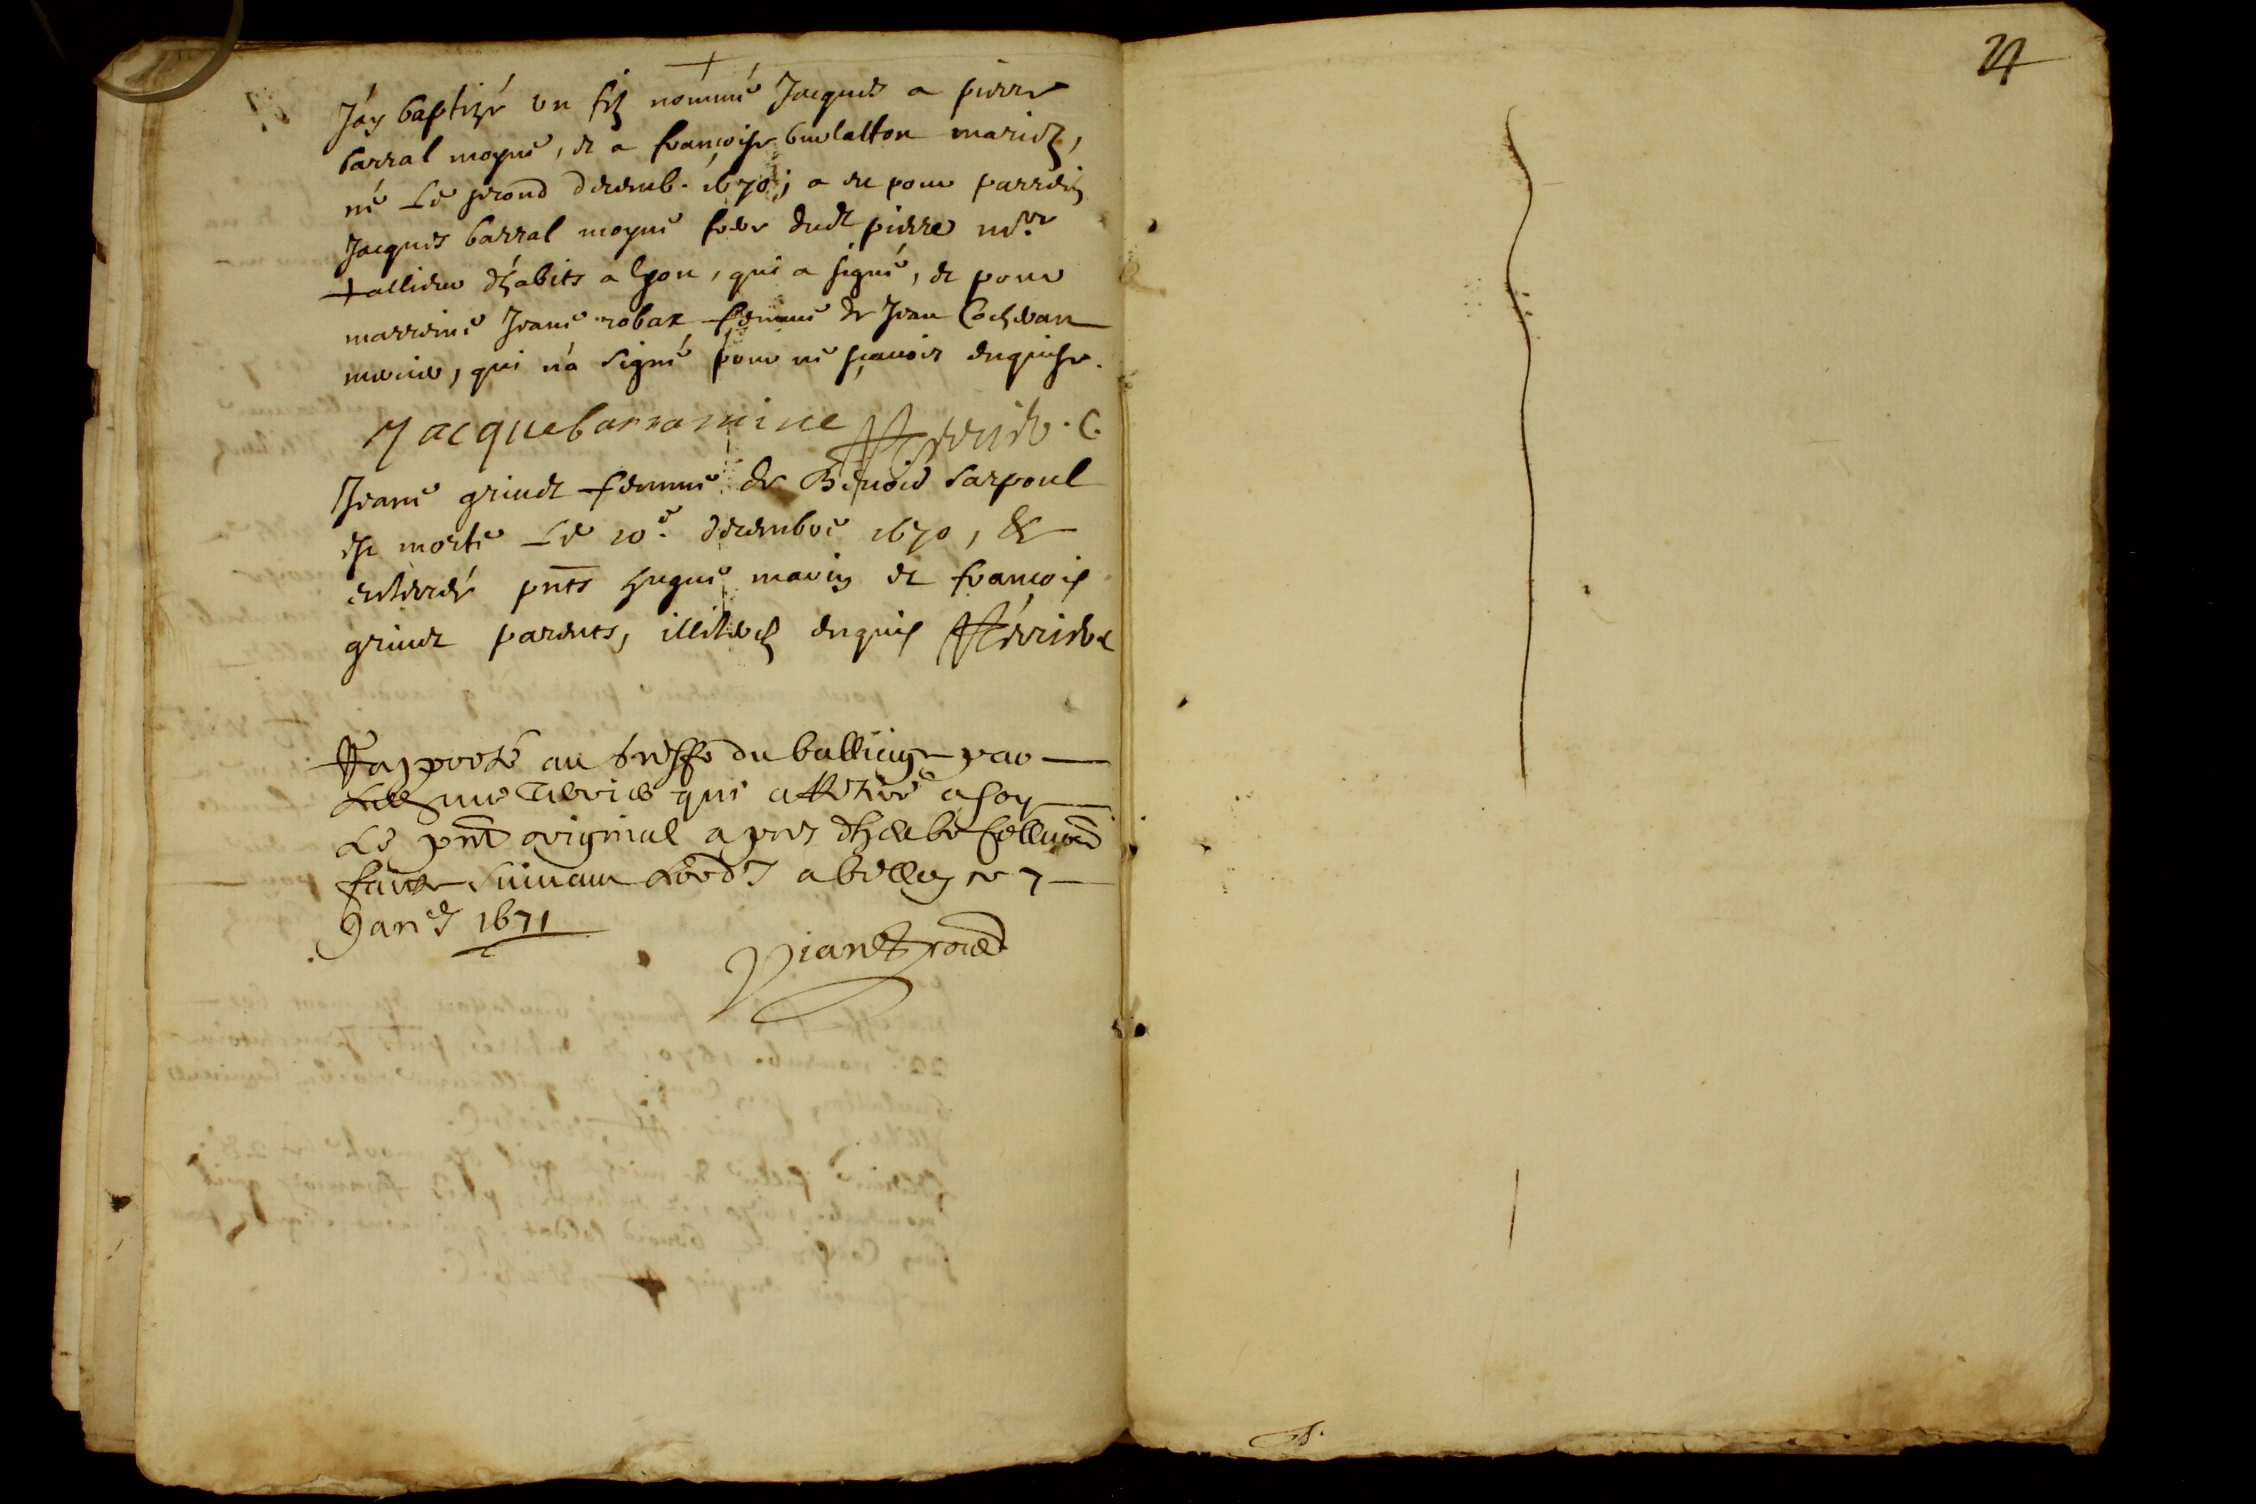 24
J'ay baptizé un filz nommé Jacques a pierre
barral moyne, et a françoise mariez,
né Le second decemb. 1670; a eu pour parrein
Jacques barral moyne frere dudt pierre mre
tallieur d'habits a lyon, qui a signé, et pour
marreine Jeane robat femme de Jean Cocheran
, qui n'a signé pour ne sçavoir enquise.
Jacque barra mine
Jeane grivet femme de Benoid Carpoul
est morte Le 10e. decembre 1670, &
enterrée pnts hugue marin et françois
grivet parents, illiterez enquis
Rapporté au greffe du balliage par
qui a Retiré a soy
Le pnt original apres
faitte suivant Lord. a belley ce 7
Janer 1671